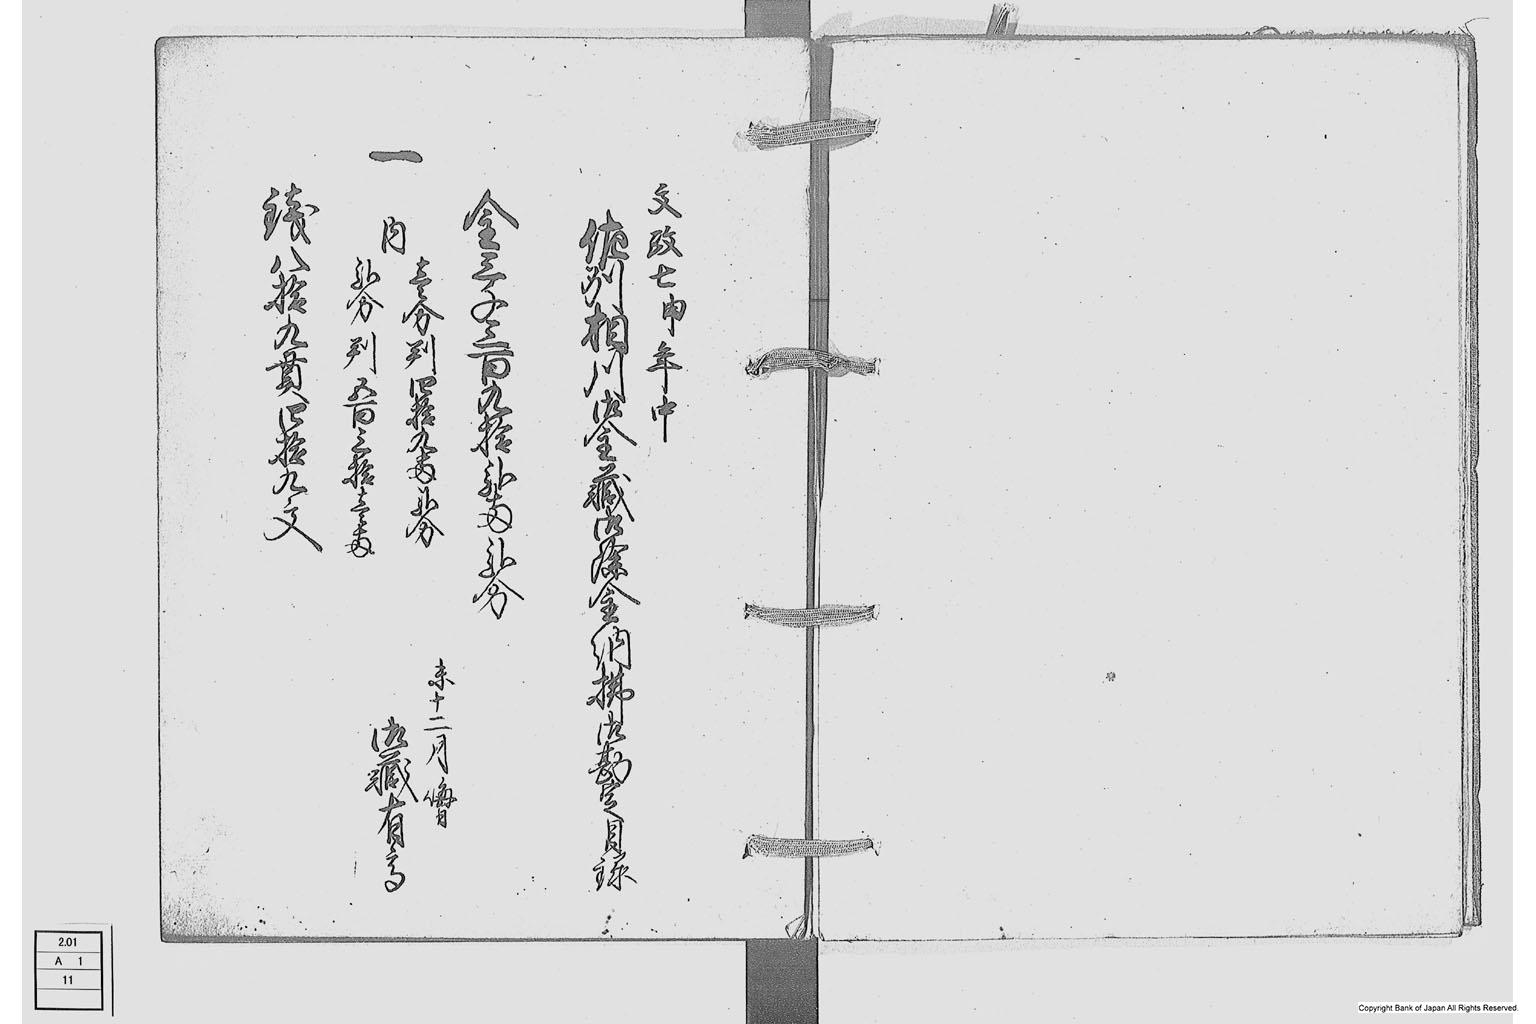 文政七申年中
佐州相川御金蔵御除金納拂御勘定目録
金三千三百九拾弐両弐分
一
内
壱分判四拾九両弐分
弐分判五百三拾壱両
銭八拾九貫四拾九文
未十二月晦日
御蔵有高
2.01
A 1
11
Copyright Bank of Japan All Rights Reserved.